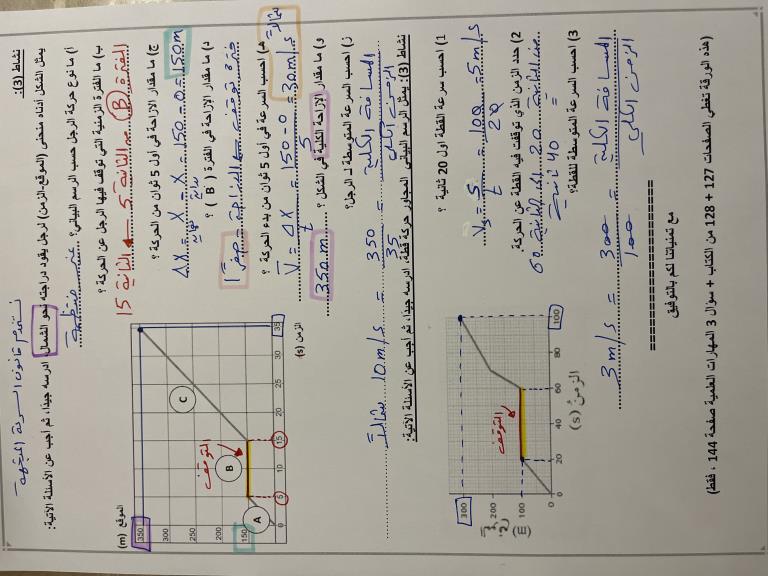 نستخدم قانون السرعة المتجهة
نشاط (3):
يمثل الشكل أدناه منحنى (الموقع-الزمن) لرجل يقود دراجته نحو الشمال، ادرسه جيداً، ثم أجب عن الأسئلة الآتية:
أ) ما نوع حركة الرجل حسب الرسم البياني؟ غير منتظمة
ب) ما الفترة الزمنية التي توقف فيها الرجل عن الحركة ؟
الفترة (B) من الثانية 5 ← الثانية 15
ج) ما مقدار الازاحة في أول 5 ثوان من الحركة ؟
Δx = x نهاية - x بداية = 150 - 0 = 150m
د) ما مقدار الازاحة في الفترة ( B ) ؟
فترة توقف ← الازاحة = صفر
هـ) احسب السرعة في أول 5 ثوان من بدء الحركة ؟
V = Δx / t = 150 - 0 / 5 = 30 m/s شمالاً
و) ما مقدار الإزاحة الكلية في الشكل ؟ 350m
ز) احسب السرعة المتوسطة لـ الرجل؟
المسافة الكلية / الزمن الكلي = 350 / 35 = 10 m/s شمالاً
الموقع (m)
350
300
250
200
150
0
A
B
C
التوقف
0
5
10
15
20
25
30
35
الزمن (s)
نشاط (3): يمثل الرسم البياني المجاور حركة قطة، ادرسه جيداً، ثم أجب عن الأسئلة الآتية:
1) احسب سرعة القطة اول 20 ثانية ؟
Vs = S / t = 100 / 20 = 5 m/s
2) حدد الزمن الذي توقفت فيه القطة عن الحركة.
من الثانية 20 الى الثانية 60
= 40 ثانية
3) احسب السرعة المتوسطة للقطة؟
المسافة الكلية / الزمن الكلي = 300 / 100 = 3 m/s
300
200
100
0
(m)
التوقف
0
20
40
60
80
100
الزمن (s)
==================
مع تمنياتنا لكم بالتوفيق
(هذه الورقة تغطي الصفحات 127 + 128 من الكتاب + سؤال 3 المهارات العلمية صفحة 144 ، فقط)